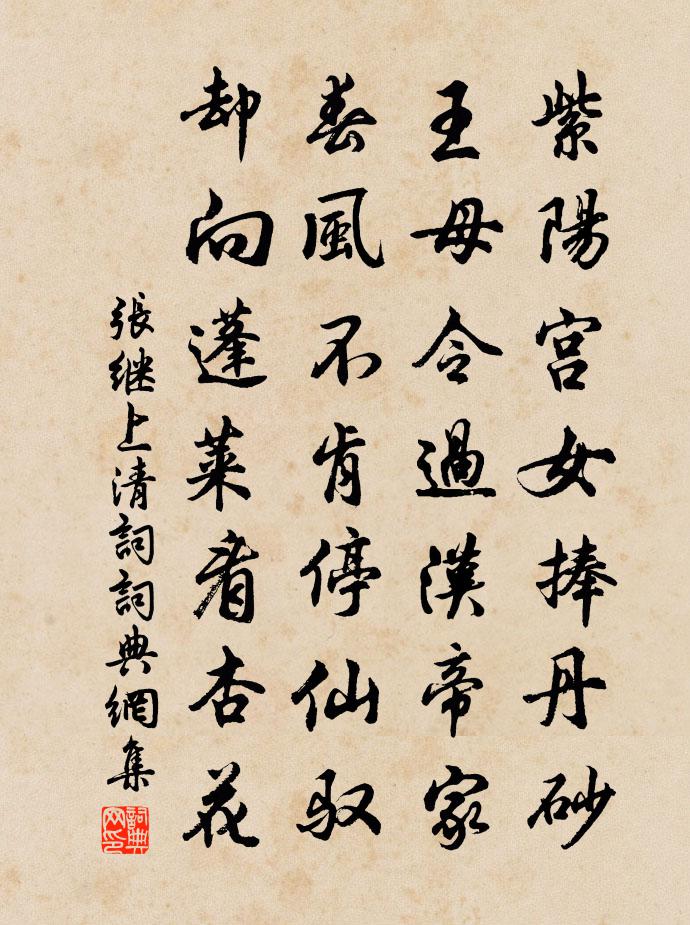 紫陽宮女捧丹砂
王母令過漢帝家
春風不肯停仙馭
却向蓬萊看杏花
張继上清詞詞典網集
詞典網印